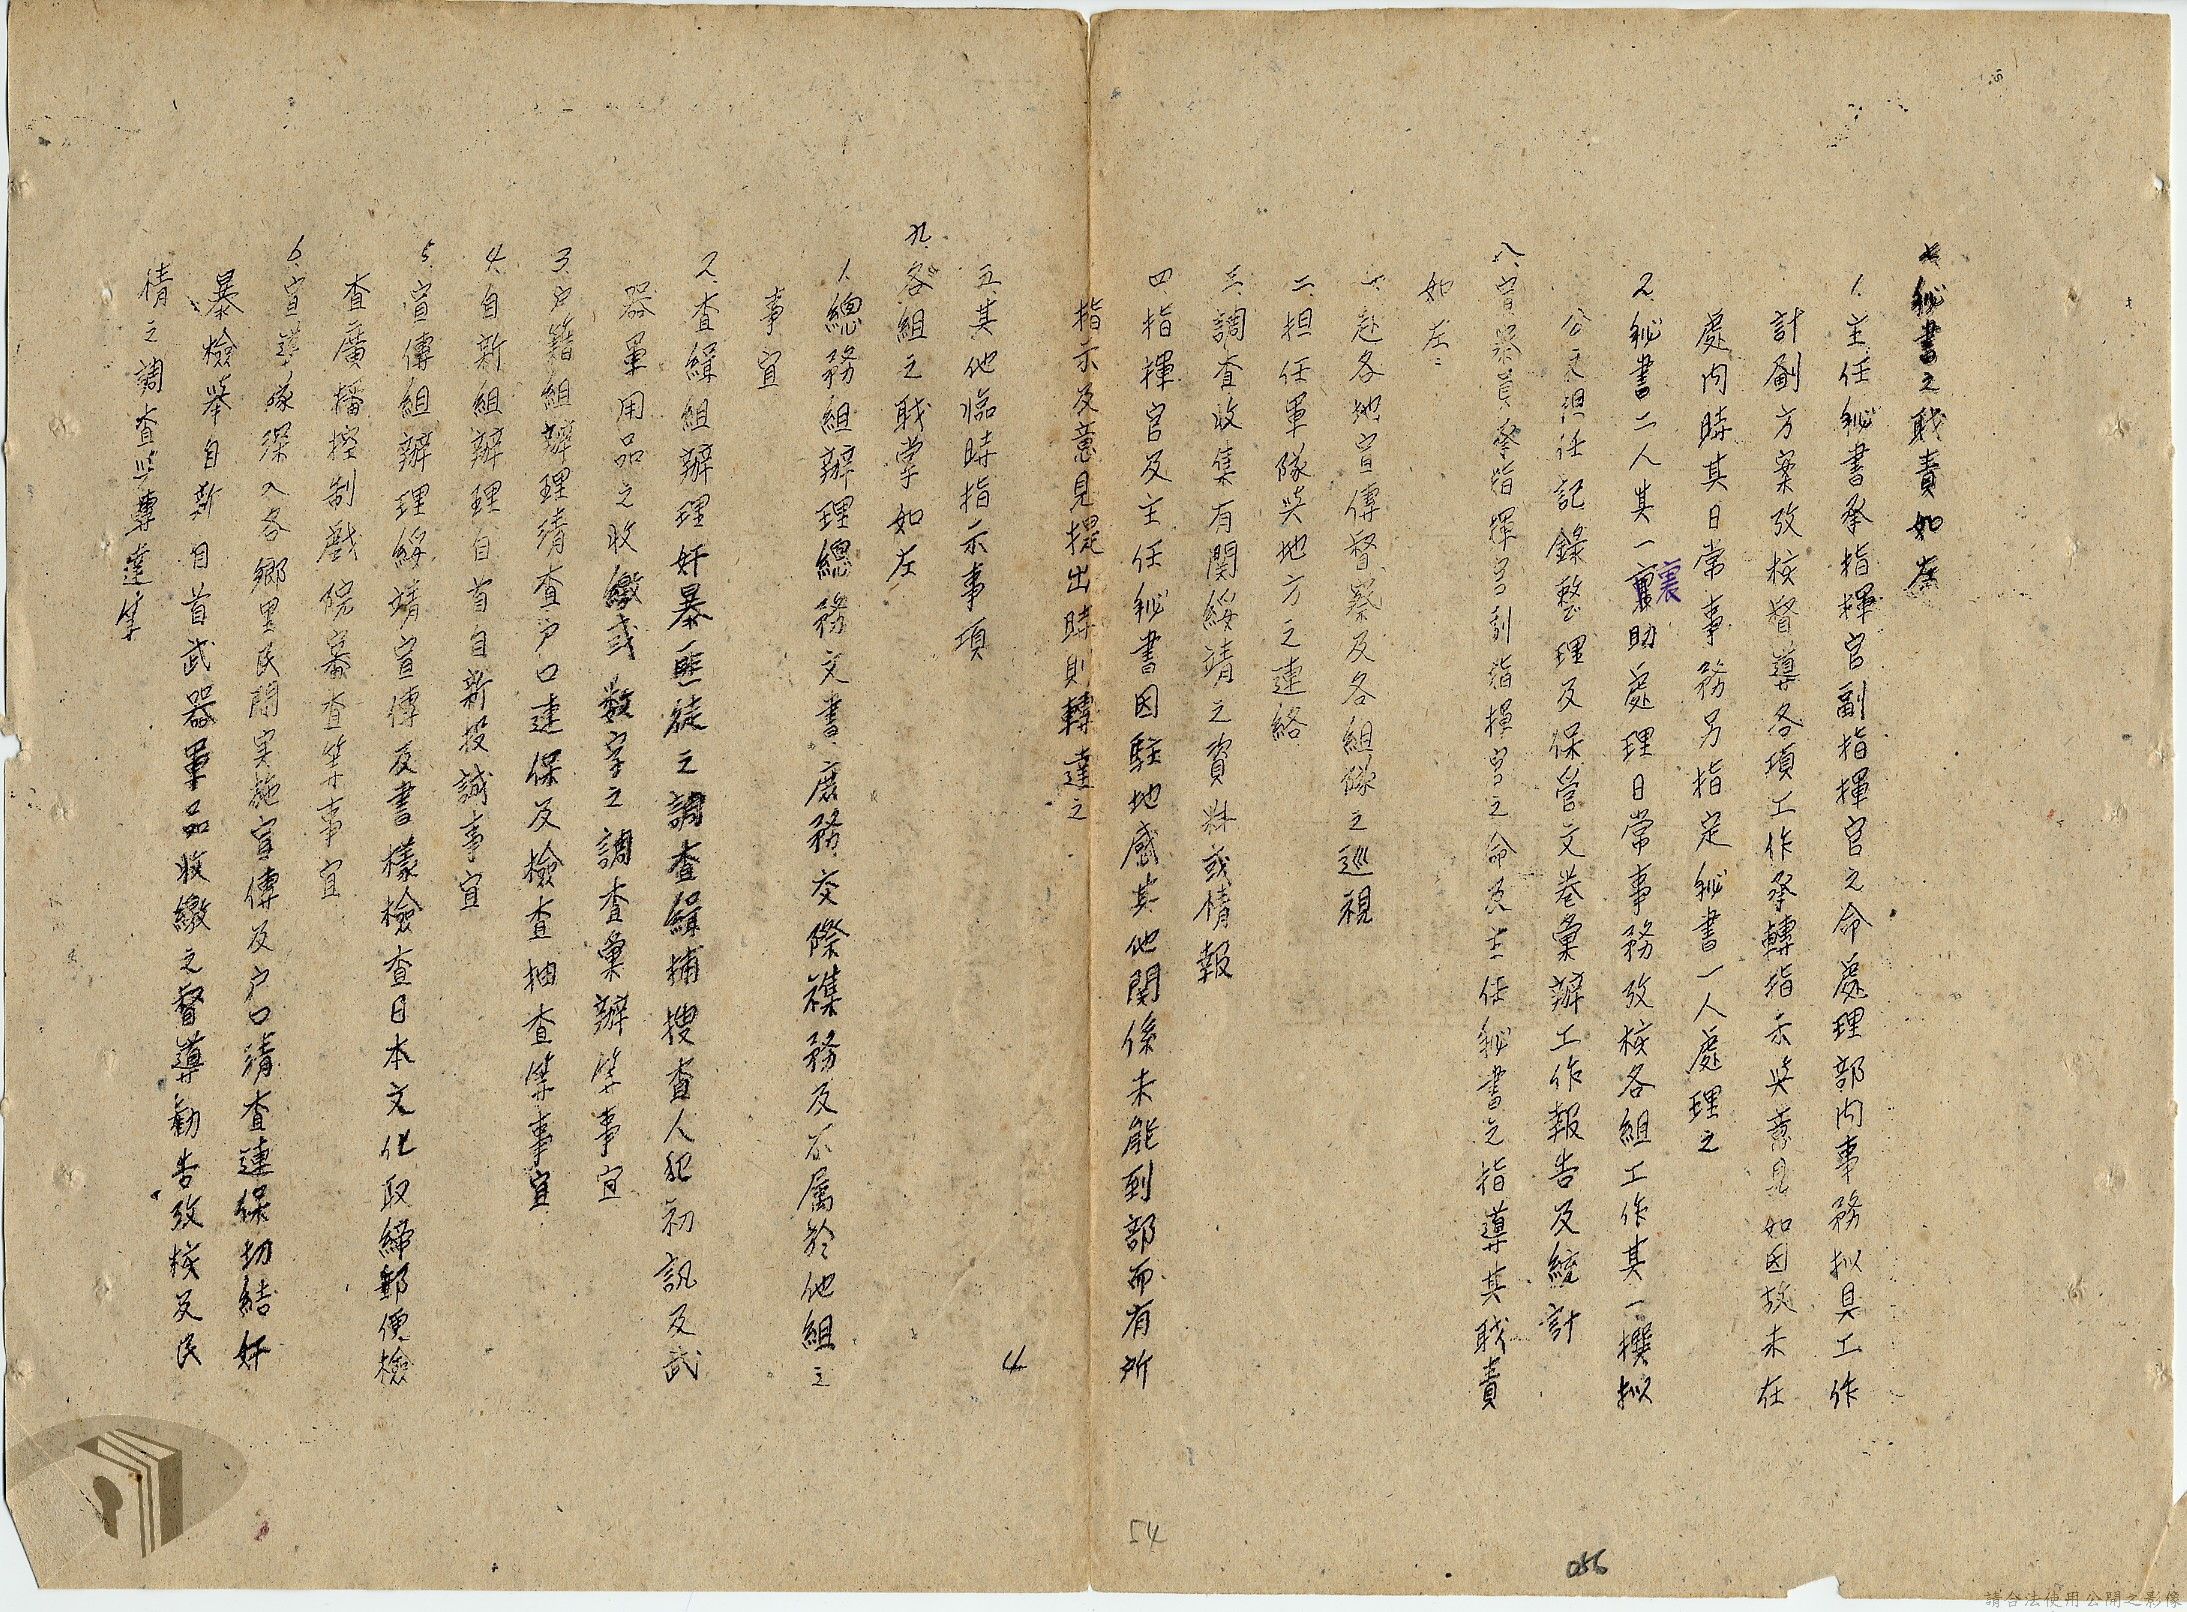 七秘書之職責如左
1.主任秘書承指揮官副指揮官之命處理部內事務拟具工作
計劃方案攷核督導各項工作承轉指示與意見如因故未在
處內時其日常事務另指定秘書一人處理之
2.秘書二人其一襄助處理日常事務攷核各組工作其一撰拟
公文担任記錄整理及保管文卷彙辦工作報告及統計
八.宣察員承指揮官副指揮官之命及主任秘書之指導其職責
如左:
一.赴各地宣傳督察及各組隊之巡視
二.担任軍隊與地方之連絡
三.調查收集有関綏靖之資料或情報
四.指揮官及主任秘書因駐地感其他関係未能到部而有所
指示及意見提出時則轉達之
五.其他臨時指示事項
九.各組之職掌如左
1.總務組辦理總務文書.庶務.交際襍務及不属於他組之
事宜
2.查緝組辦理奸暴匪徒之調查緝捕搜查人犯初訊及武
器軍用品之收繳或数字之調查彙辦等事宜
3.户籍組辦理清查户口連保及檢查抽查等事宜
4.自新組辦理自首自新投誠事宜
5.宣傳組辦理綏靖宣傳及書樣檢查日本文化取締郵便檢
查廣播控制戲院審查等事宜
6.宣導隊深入各鄉里民間実施宣傳及户口清查連保切結奸
暴檢舉自新自首武器軍品收繳之督導勸告攷核及民
情之調查與轉達等
4
54
056
請合法使用公開之影像